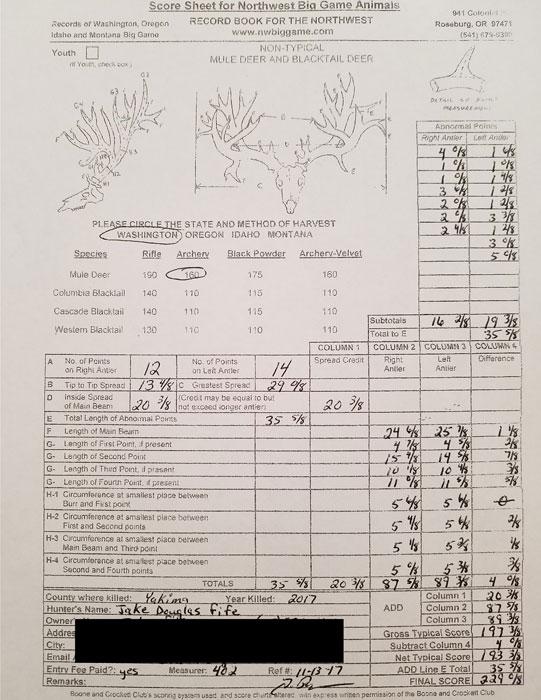 Score Sheet for Northwest Big Game Animals
Records of Washington, Oregon Idaho and Montana Big Game
RECORD BOOK FOR THE NORTHWEST
www.nwbiggame.com
941 Colonial
Roseburg, OR 97471
(541) 679-
Youth
(If Youth, check box)
NON-TYPICAL
MULE DEER AND BLACKTAIL DEER
DETAIL OF POINT MEASUREMENT
Abnormal Points
Right Antler Left Antler
4 0/8 1 6/8
1 0/8 1 0/8
1 0/8 1 4/8
3 6/8 1 2/8
2 0/8 1 2/8
2 0/8 3 3/8
2 4/8 1 2/8
3 0/8
5 0/8
PLEASE CIRCLE THE STATE AND METHOD OF HARVEST
WASHINGTON OREGON IDAHO MONTANA
Species Rifle Archery Black Powder Archery-Velvet
Mule Deer 190 160 175 160
Columbia Blacktail 140 110 115 110
Cascade Blacktail 140 110 115 110
Western Blacktail 130 110 110 110
Subtotals 16 2/8 19 3/8
Total to E 35 5/8
COLUMN 1 COLUMN 2 COLUMN 3 COLUMN 4
A No. of Points on Right Antler 12 No. of Points on Left Antler 14 Spread Credit Right Antler Left Antler Difference
B Tip to Tip Spread 13 4/8 C Greatest Spread 29 0/8
D Inside Spread of Main Beam 20 3/8 (Credit may be equal to but not exceed longer antler) 20 3/8
E Total Length of Abnormal Points 35 5/8
F Length of Main Beam 24 6/8 25 7/8 1 1/8
G- Length of First Point, if present 4 7/8 4 5/8 2/8
G- Length of Second Point 15 4/8 14 5/8 7/8
G- Length of Third Point, if present 10 1/8 10 4/8 3/8
G- Length of Fourth Point, if present 11 0/8 11 5/8 5/8
H-1 Circumference at smallest place between Burr and First point 5 4/8 5 4/8 0
H-2 Circumference at smallest place between First and Second points 5 4/8 5 2/8
H-3 Circumference at smallest place between Main Beam and Third point 5 1/8 5
H-4 Circumference at smallest place between Second and Fourth points 5 0/8 5 3/8 3/8
TOTALS 35 5/8 20 3/8 87 5/8 89 3/8 4 0/8
County where killed: Yakima Year Killed: 2017
Hunter's Name: Jake Douglas Fife
Owner
Addres
City:
Email
ADD Column 1 20 3/8
Column 2 87 5/8
Column 3 89 3/8
Gross Typical Score 197 3/8
Subtract Column 4 4 0/8
Net Typical Score 193 3/8
Entry Fee Paid?: yes Measurer: 402 Ref #: 11-13-17 ADD Line E Total 35 5/8
Remarks: FINAL SCORE 229 0/8
Boone and Crockett Club's scoring system used, and score charts altered with express written permission of the Boone and Crockett Club